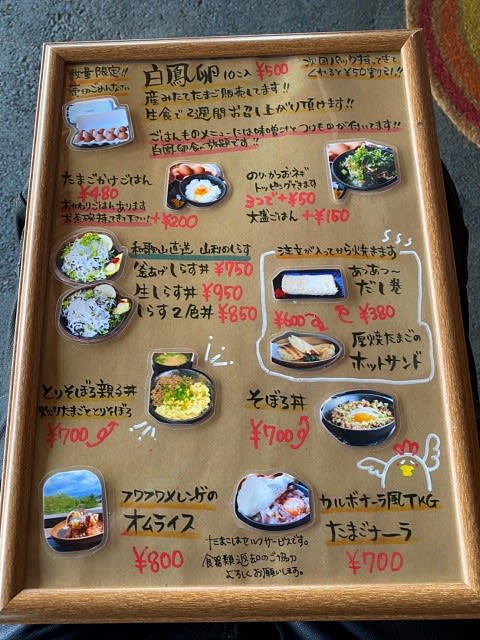 数量限定!!
売りきれごめんなさい
白鳳卵 10コ入 ¥500
次回パック持ってきて
くれると¥50割引!!
産みたてたまご販売してます!!
生食で2週間お召し上がり頂けます!!
ごはんものメニューには味噌汁とつけものが付いてます!!
白鳳卵食べ放題です!!
たまごかけごはん
¥480
おかわりごはんあります
お茶碗持ってき下さい +¥200
のり・かつお・ネギ
トッピングできます
3つで+¥50
大盛ごはん +¥150
和歌山直送 山利のしらす
釜あげしらす丼 ¥750
生しらす丼 ¥950
しらす2色丼 ¥850
注文が入ってから焼きます
あっあつ〜
だし巻
¥380
¥600
厚焼たまごの
ホットサンド
とりそぼろ親子丼
炒りたまごととりそぼろ
¥700
そぼろ丼
¥700
フワフワメレンゲの
オムライス
¥800
たまごはセルフサービスです。
食器類返却のご協力
よろしくお願いします。
カルボナーラ風TKG
たまごナーラ
¥700